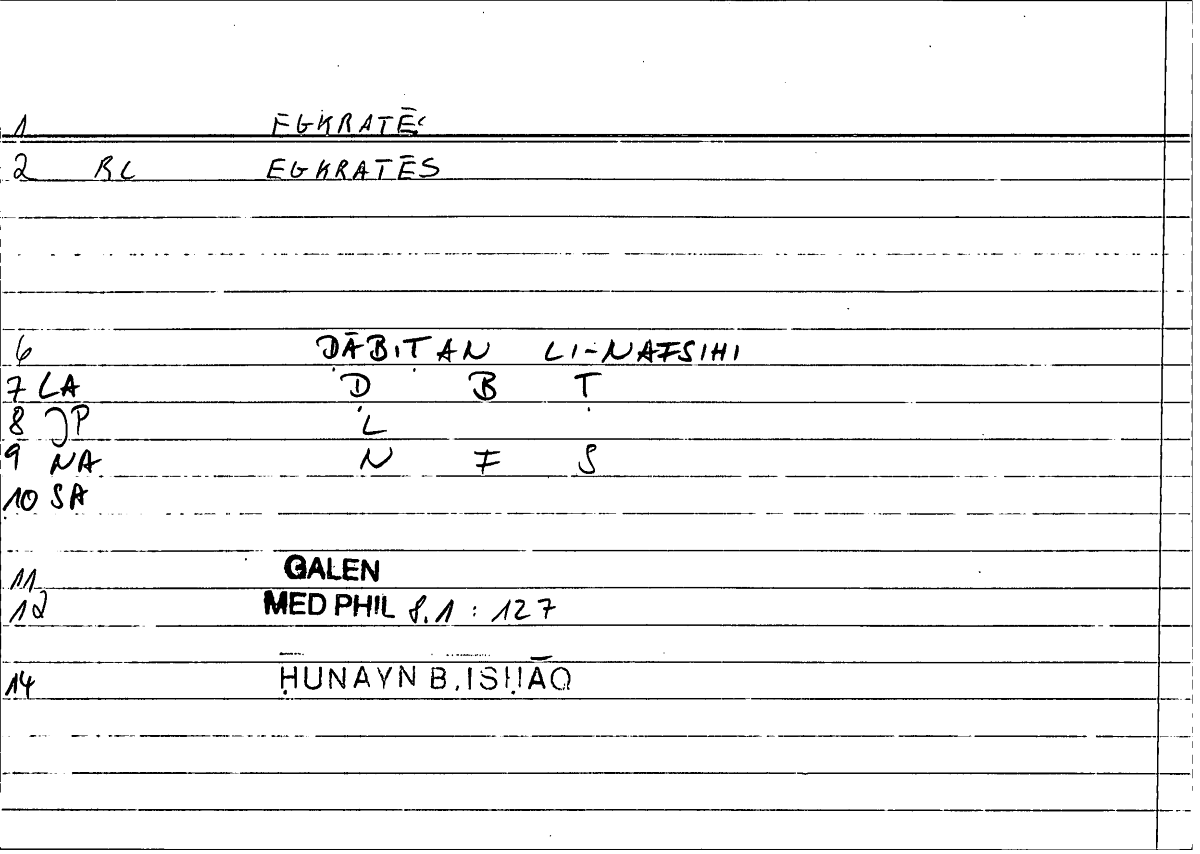 1 EGKRATĒS
2 RL EGKRATĒS
6 ḌĀBIṬAN LI-NAFSIHI
7 LA Ḍ B Ṭ
8 JP L
9 NA N F S
10 SA
11 GALEN
12 MED PHIL 8.1 : 127
14 ḤUNAYN B. ISḤĀQ